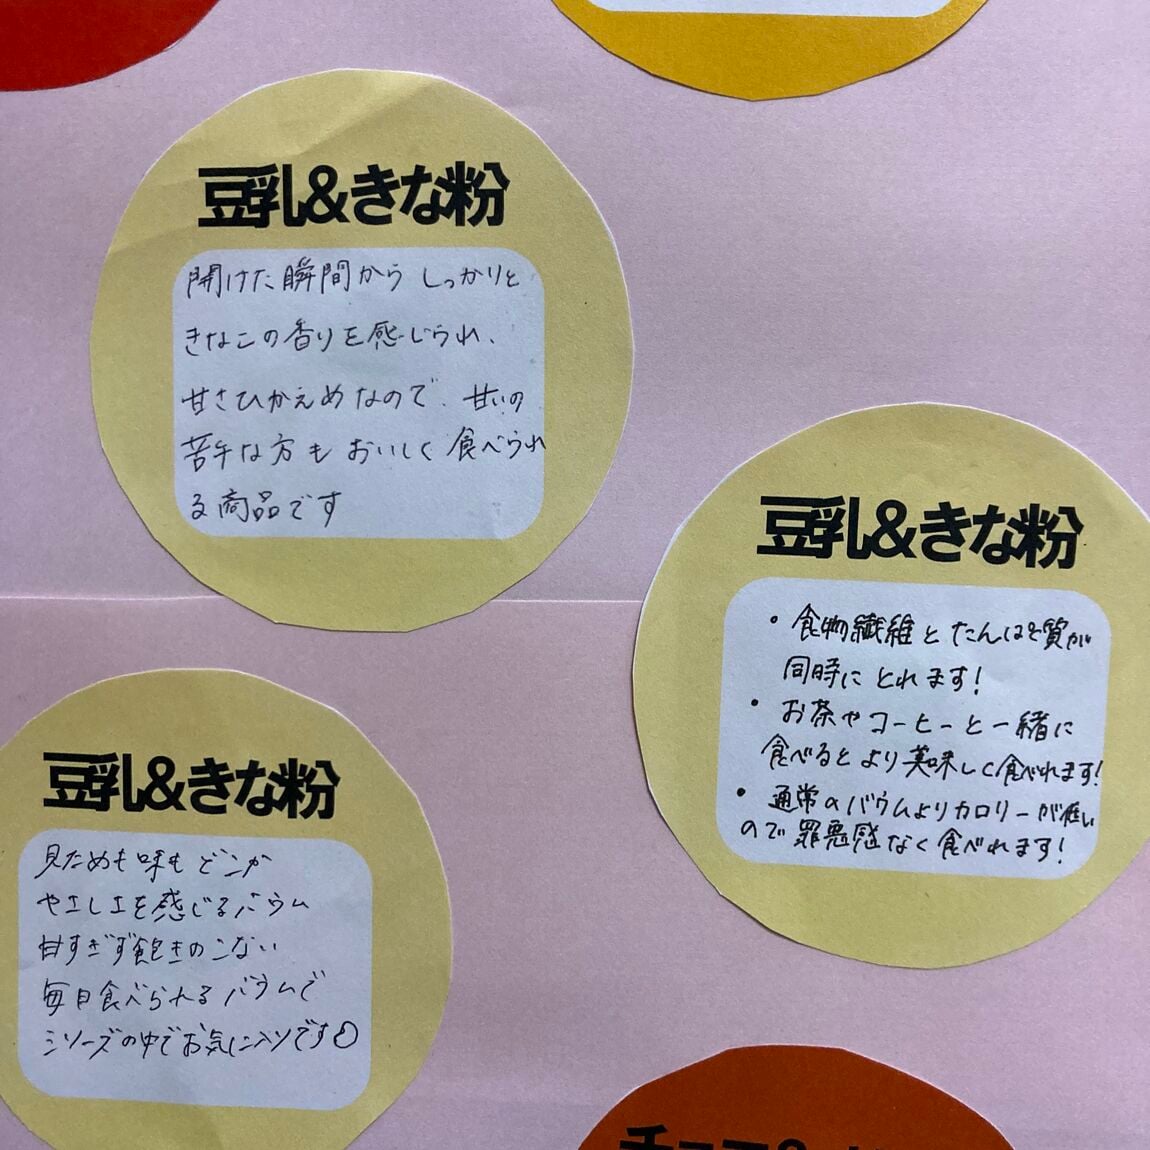 豆乳&きな粉
開けた瞬間から しっかりと
きなこの香りを感じられ、
甘さひかえめなので、甘いの
苦手な方も おいしく 食べられ
る商品です
豆乳&きな粉
・食物繊維とたんぱく質が
同時に とれます!
・お茶やコーヒーと一緒に
食べるとより美味しく食べれます!
・通常のバウムよりカロリーが低い
ので罪悪感なく食べれます!
豆乳&きな粉
見ためも味も どこか
やさしさを感じるバウム
甘すぎず飽きのこない
毎日食べられるバウムで
シリーズの中でお気に入りです